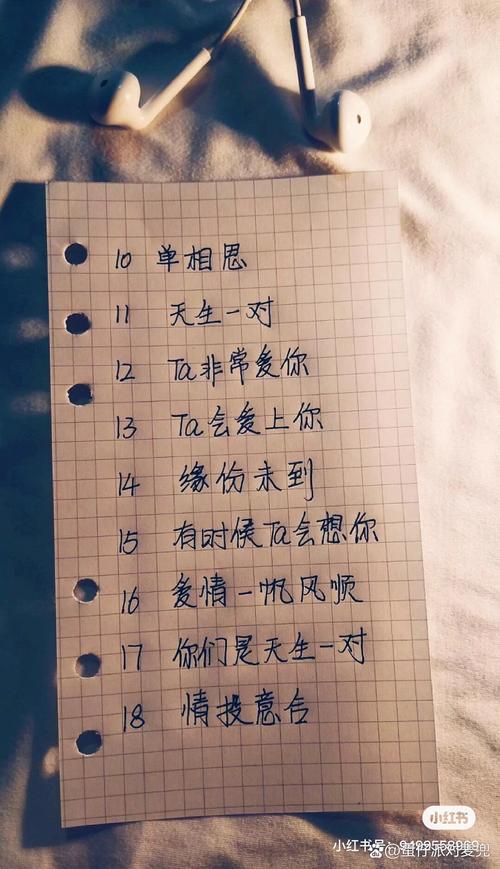 10 单相思
11 天生一对
12 Ta非常爱你
13 Ta会爱上你
14 缘份未到
15 有时候Ta会想你
16 爱情一帆风顺
17 你们是天生一对
18 情投意合
小红书
小红书号：9499558969
@蛋仔派对麦兜